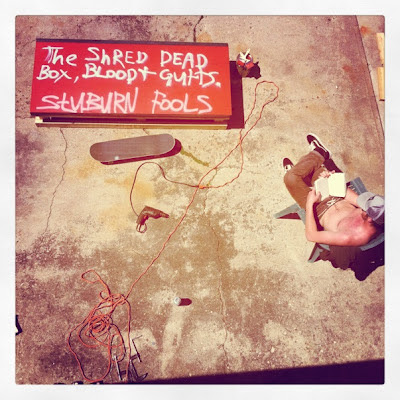 The SHRED DEAD
BOX, BLOOD + GUTTS.
STUBURN FOOLS